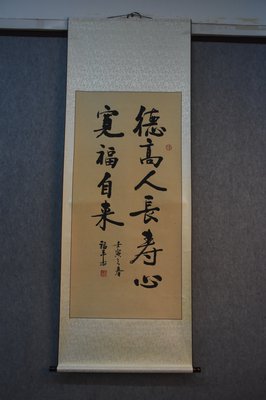 德高人長壽心
寬福自来
壬寅之春